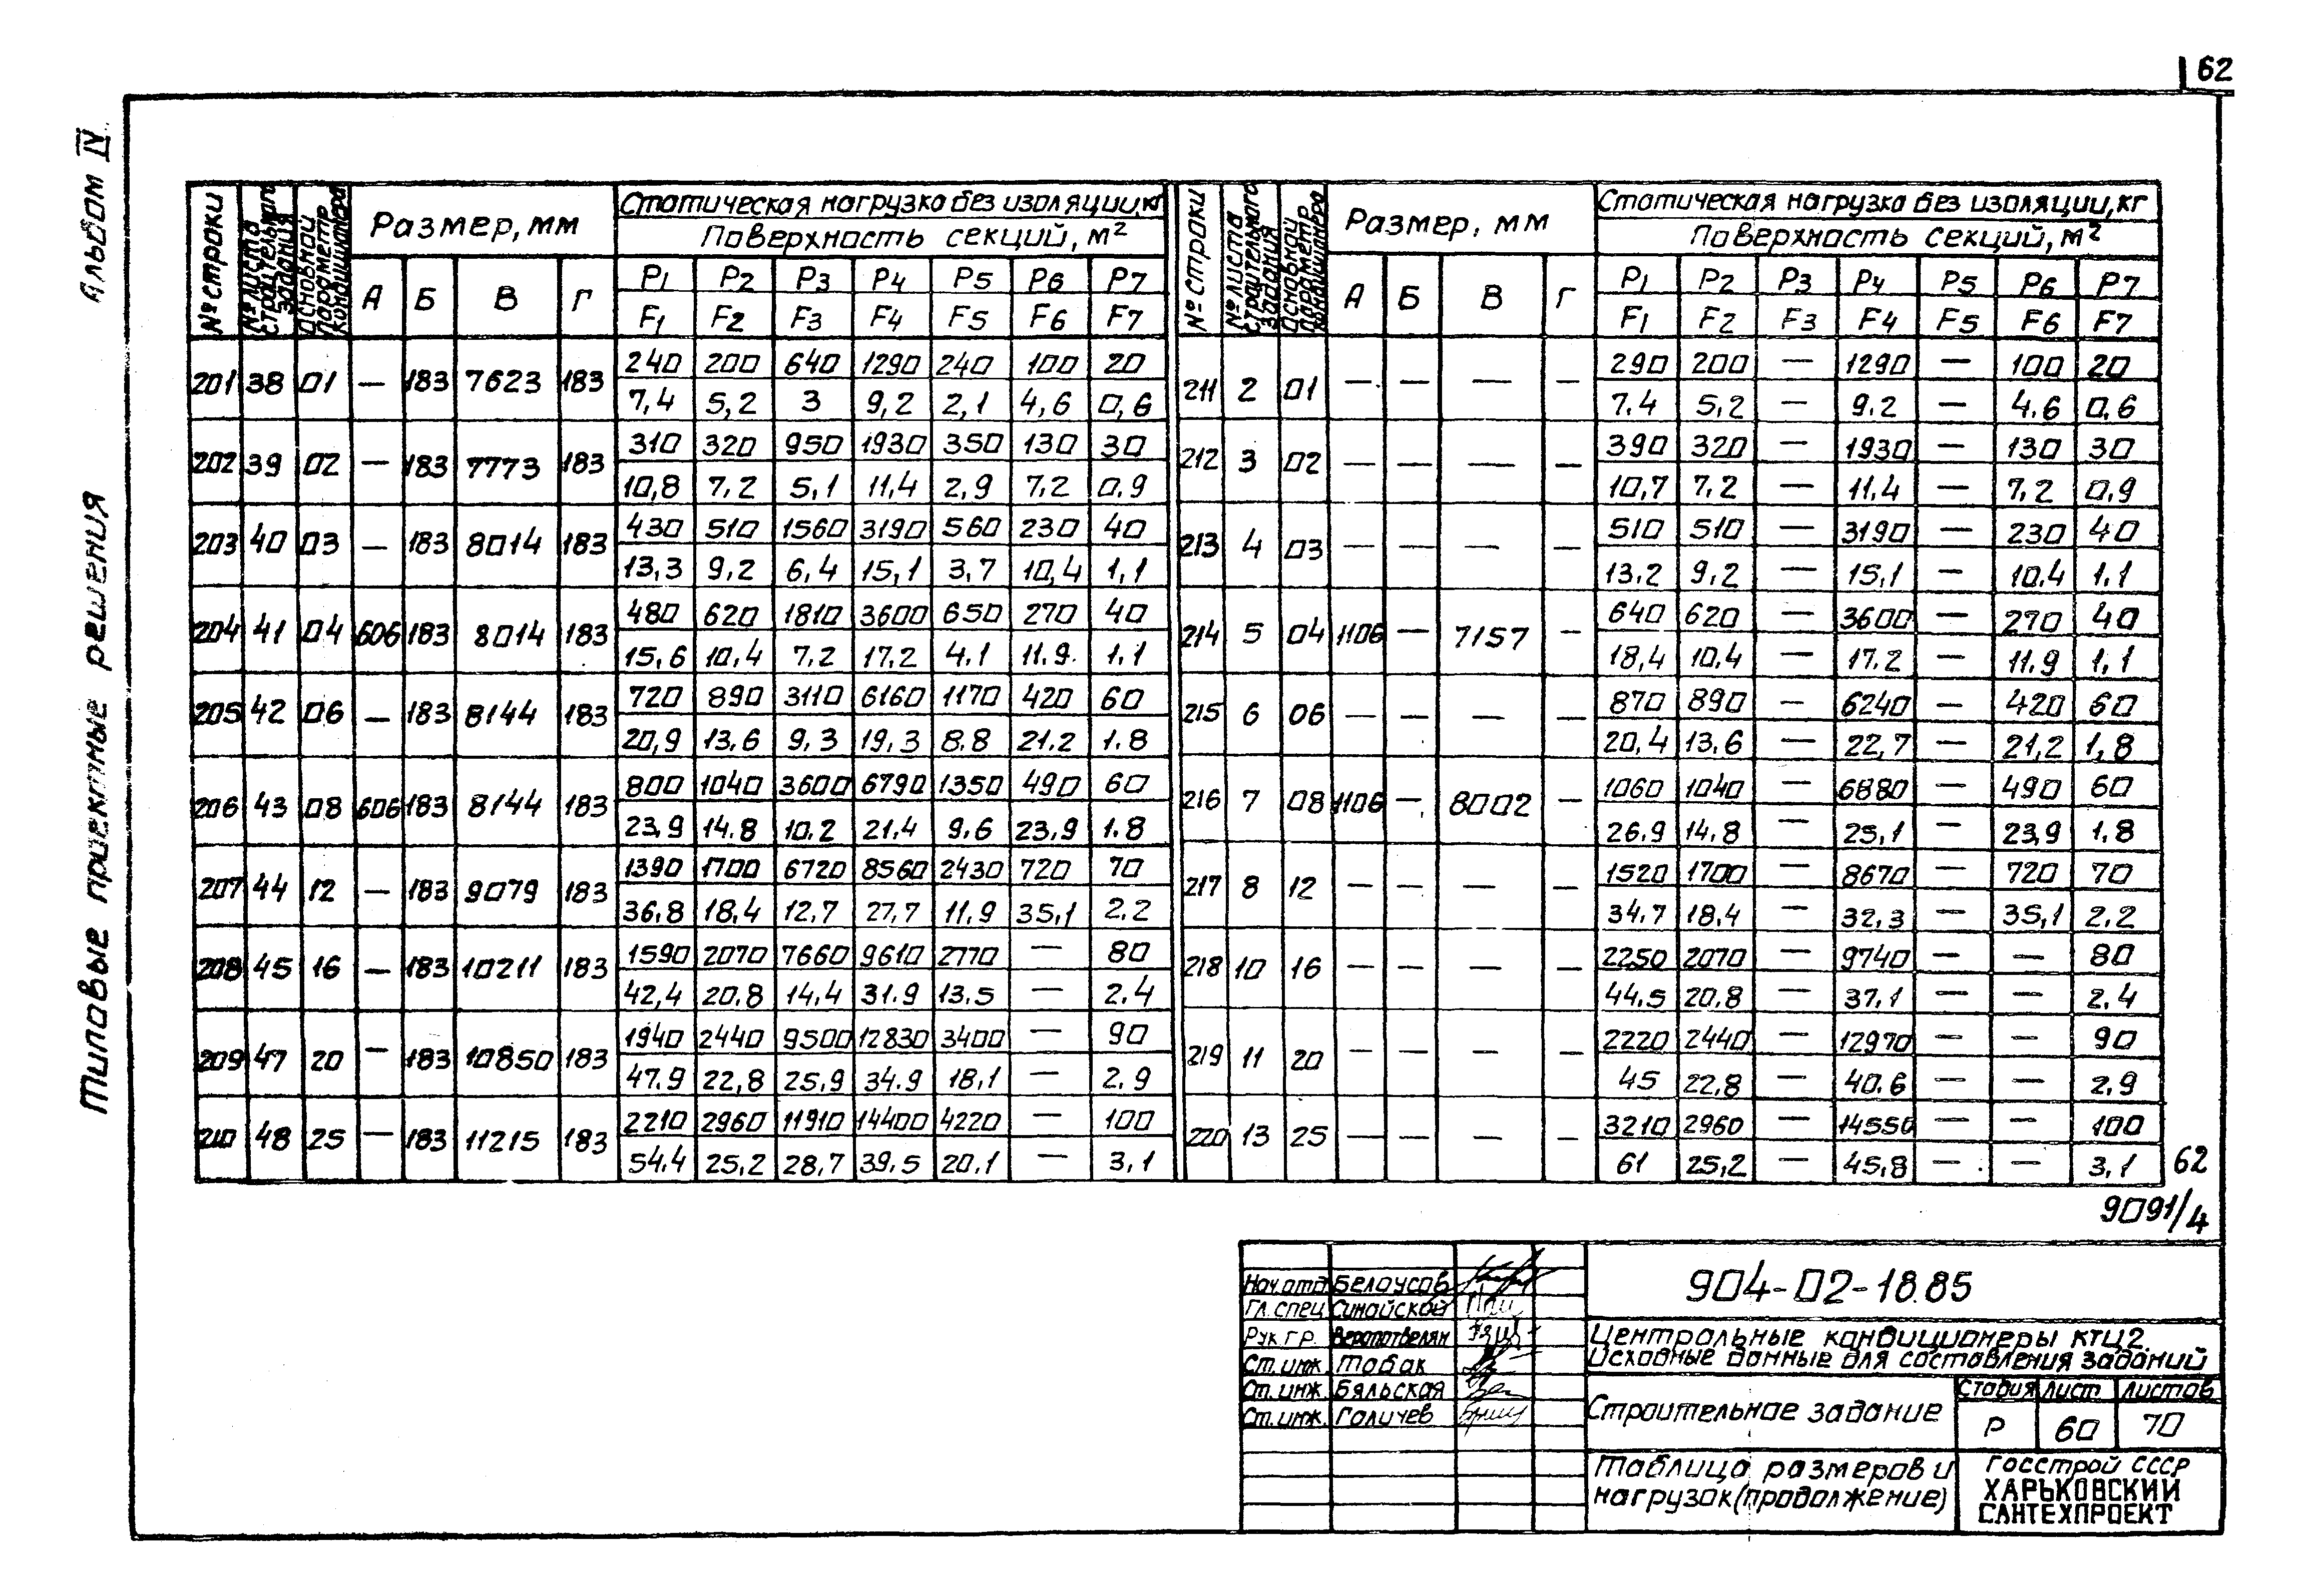 62
Альбом IV
Типовые проектные решения
№ строки | № листа строительного задания | Основной параметр кондиционера | Размер, мм | Статическая нагрузка без изоляции, кг
Поверхность секций, м²
А | Б | В | Г | P1 | P2 | P3 | P4 | P5 | P6 | P7
F1 | F2 | F3 | F4 | F5 | F6 | F7
201 | 38 | 01 | — | 183 | 7623 | 183 | 240 | 200 | 640 | 1290 | 240 | 100 | 20
7,4 | 5,2 | 3 | 9,2 | 2,1 | 4,6 | 0,6
202 | 39 | 02 | — | 183 | 7773 | 183 | 310 | 320 | 950 | 1930 | 350 | 130 | 30
10,8 | 7,2 | 5,1 | 11,4 | 2,9 | 7,2 | 0,9
203 | 40 | 03 | — | 183 | 8014 | 183 | 430 | 510 | 1560 | 3190 | 560 | 230 | 40
13,3 | 9,2 | 6,4 | 15,1 | 3,7 | 10,4 | 1,1
204 | 41 | 04 | 606 | 183 | 8014 | 183 | 480 | 620 | 1810 | 3600 | 650 | 270 | 40
15,6 | 10,4 | 7,2 | 17,2 | 4,1 | 11,9 | 1,1
205 | 42 | 06 | — | 183 | 8144 | 183 | 720 | 890 | 3110 | 6160 | 1170 | 420 | 60
20,9 | 13,6 | 9,3 | 19,3 | 8,8 | 21,2 | 1,8
206 | 43 | 08 | 606 | 183 | 8144 | 183 | 800 | 1040 | 3600 | 6790 | 1350 | 490 | 60
23,9 | 14,8 | 10,2 | 21,4 | 9,6 | 23,9 | 1,8
207 | 44 | 12 | — | 183 | 9079 | 183 | 1390 | 1700 | 6720 | 8560 | 2430 | 720 | 70
36,8 | 18,4 | 12,7 | 27,7 | 11,9 | 35,1 | 2,2
208 | 45 | 16 | — | 183 | 10211 | 183 | 1590 | 2070 | 7660 | 9610 | 2770 | — | 80
42,4 | 20,8 | 14,4 | 31,9 | 13,5 | — | 2,4
209 | 47 | 20 | — | 183 | 10850 | 183 | 1940 | 2440 | 9500 | 12830 | 3400 | — | 90
47,9 | 22,8 | 25,9 | 34,9 | 18,1 | — | 2,9
210 | 48 | 25 | — | 183 | 11215 | 183 | 2210 | 2960 | 11910 | 14400 | 4220 | — | 100
54,4 | 25,2 | 28,7 | 39,5 | 20,1 | — | 3,1
№ строки | № листа строительного задания | Основной параметр кондиционера | Размер, мм | Статическая нагрузка без изоляции, кг
Поверхность секций, м²
А | Б | В | Г | P1 | P2 | P3 | P4 | P5 | P6 | P7
F1 | F2 | F3 | F4 | F5 | F6 | F7
211 | 2 | 01 | — | — | — | — | 290 | 200 | — | 1290 | — | 100 | 20
7,4 | 5,2 | — | 9,2 | — | 4,6 | 0,6
212 | 3 | 02 | — | — | — | — | 390 | 320 | — | 1930 | — | 130 | 30
10,7 | 7,2 | — | 11,4 | — | 7,2 | 0,9
213 | 4 | 03 | — | — | — | — | 510 | 510 | — | 3190 | — | 230 | 40
13,2 | 9,2 | — | 15,1 | — | 10,4 | 1,1
214 | 5 | 04 | 1106 | — | 7157 | — | 640 | 620 | — | 3600 | — | 270 | 40
18,4 | 10,4 | — | 17,2 | — | 11,9 | 1,1
215 | 6 | 06 | — | — | — | — | 870 | 890 | — | 6240 | — | 420 | 60
20,4 | 13,6 | — | 22,7 | — | 21,2 | 1,8
216 | 7 | 08 | 1106 | — | 8002 | — | 1060 | 1040 | — | 6880 | — | 490 | 60
26,9 | 14,8 | — | 25,1 | — | 23,9 | 1,8
217 | 8 | 12 | — | — | — | — | 1520 | 1700 | — | 8670 | — | 720 | 70
34,7 | 18,4 | — | 32,3 | — | 35,1 | 2,2
218 | 10 | 16 | — | — | — | — | 2250 | 2070 | — | 9740 | — | — | 80
44,5 | 20,8 | — | 37,1 | — | — | 2,4
219 | 11 | 20 | — | — | — | — | 2220 | 2440 | — | 12970 | — | — | 90
45 | 22,8 | — | 40,6 | — | — | 2,9
220 | 13 | 25 | — | — | — | — | 3210 | 2960 | — | 14550 | — | — | 100
61 | 25,2 | — | 45,8 | — | — | 3,1
62
9091/4
Нач.отд. Белоусов
Гл.спец. Синайской
Рук.гр.
Ст.инж. Табак
Ст.инж. Бяльская
Ст.инж. Галичев
904-02-18.85
Центральные кондиционеры КТЦ2.
Исходные данные для составления заданий
Строительное задание
Стадия | Лист | Листов
Р | 60 | 70
Таблица размеров и
нагрузок (продолжение)
Госстрой СССР
ХАРЬКОВСКИЙ
САНТЕХПРОЕКТ